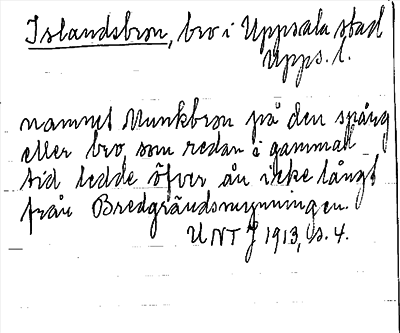 Islandsbron, bro i Uppsala stad
Upps. l.
namnet Munkbron på den spång
eller bro, som redan i gammal
tid ledde öfver ån icke långt
från Bredgrändsmynningen.
UNT J 1913, s. 4.